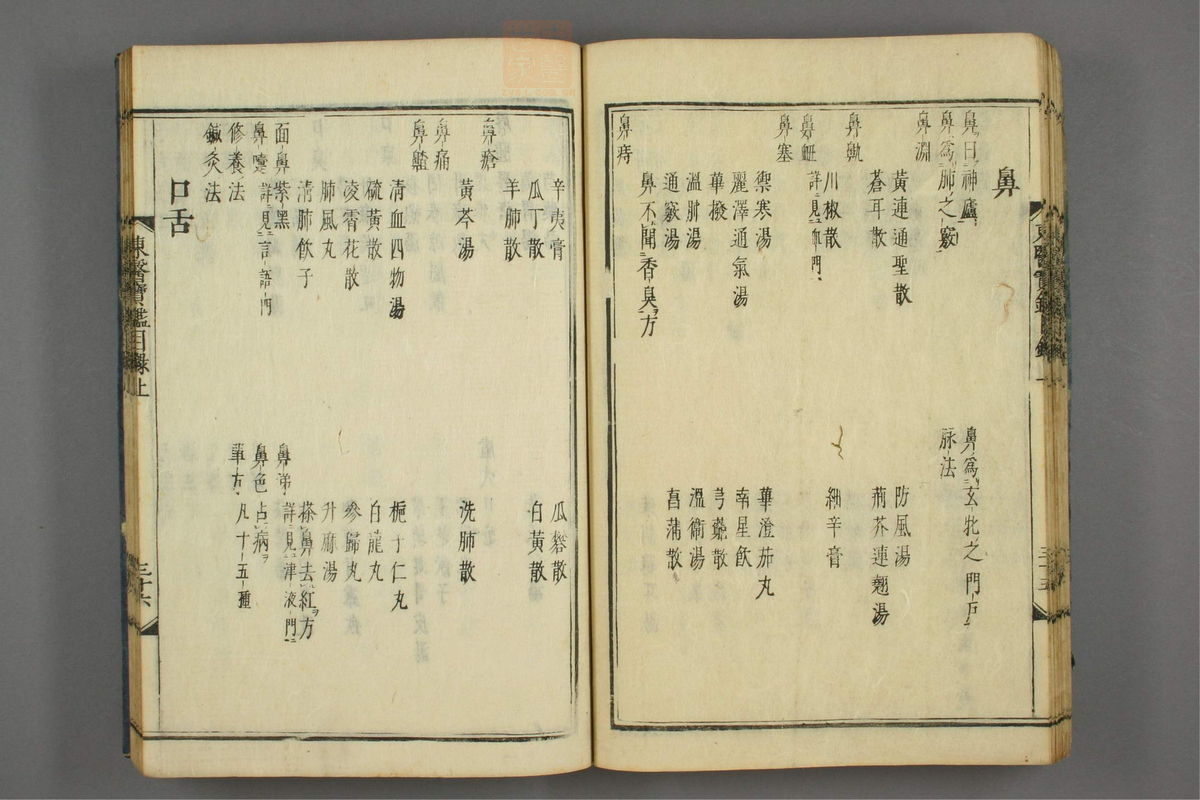 鼻
鼻曰神廬
鼻為玄牝之門戶
鼻為肺之竅
脉法
鼻淵
黃連通聖散
防風湯
蒼耳散
荊芥連翹湯
鼻鼽
川椒散
細辛膏
鼻衄 詳見血門
鼻塞
禦寒湯
蓽澄茄丸
麗澤通氣湯
南星飲
蓽撥
芎藭散
溫肺湯
溫衛湯
通竅湯
菖蒲散
鼻不聞香臭方
鼻痔
辛夷膏
瓜礬散
瓜丁散
白黃散
羊肺散
鼻瘡
黃芩湯
洗肺散
鼻痛
鼻齄
清血四物湯
梔子仁丸
硫黃散
白龍丸
凌霄花散
參歸丸
肺風丸
升麻湯
清肺飲子
搽鼻去紅方
面鼻紫黑
鼻涕 詳見津液門
鼻嚏 詳見言語門
鼻色占病
修養法
單方 凡十五種
鍼灸法
口舌
東醫寶鑑目錄上
三十六